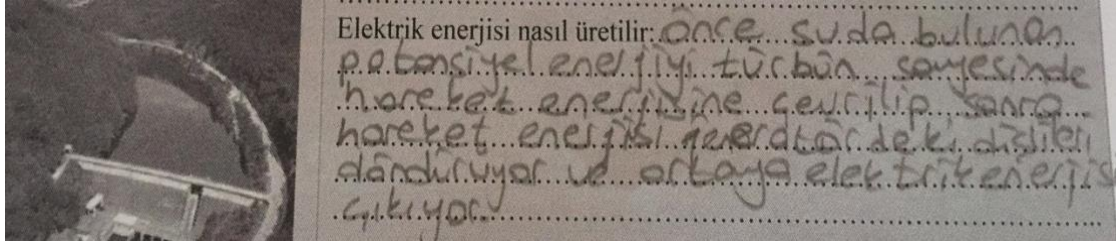 Elektrik enerjisi nasıl üretilir: Önce suda bulunan
potansiyel enerjiyi türbün sayesinde
hareket enerjisine çevrilip sonra
hareket enerjisi generatördeki dişlileri
döndürüyor ve ortaya elektrik enerjis
çıkıyor